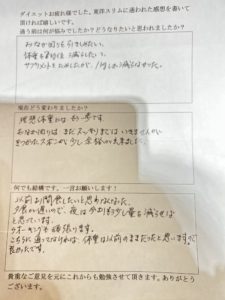 ダイエットお疲れ様でした。東洋スリムに通われた感想を書いて
頂ければ嬉しいです。
通う前は何が悩みでしたか？どうなりたいと思われましたか？
おなか回りを引きしめたい。
体重も 減らしたい。
サプリメントをためしたが、
現在どう変わりましたか？
理想体重には あと一歩です。
おなか回りは まだ スッキリまでは いきませんが
きつかったズボンが少し余裕が出来ました。
何でも結構です。一言お願いします！
以前より間食したいと思わなくなった。
夕食が遅いので、夜は今よりも少し量を減らせば
と思っています。
ウオーキングも頑張ります。
こちらに通ってなければ、体重は以前のままだったと思いますので
良かったです。
貴重なご意見を元にこれからも勉強させて頂きます。ありがとう
ございます。